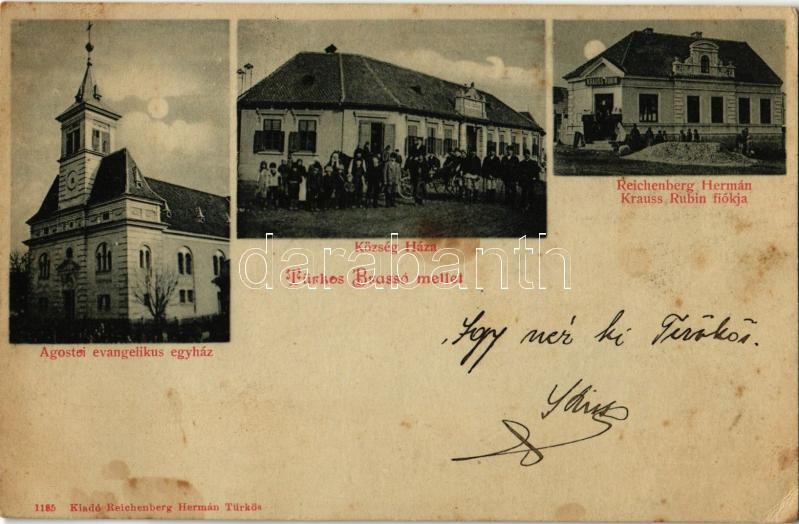 KRAUSS RUBIN
Reichenberg Hermán
Krauss Rubin fiókja
Község Háza
Türkos Brassó mellet
darabanth
Agostei evangelikus egyház
Igy néz ki Türökös.
1185 Kiadó Reichenberg Hermán Türkös